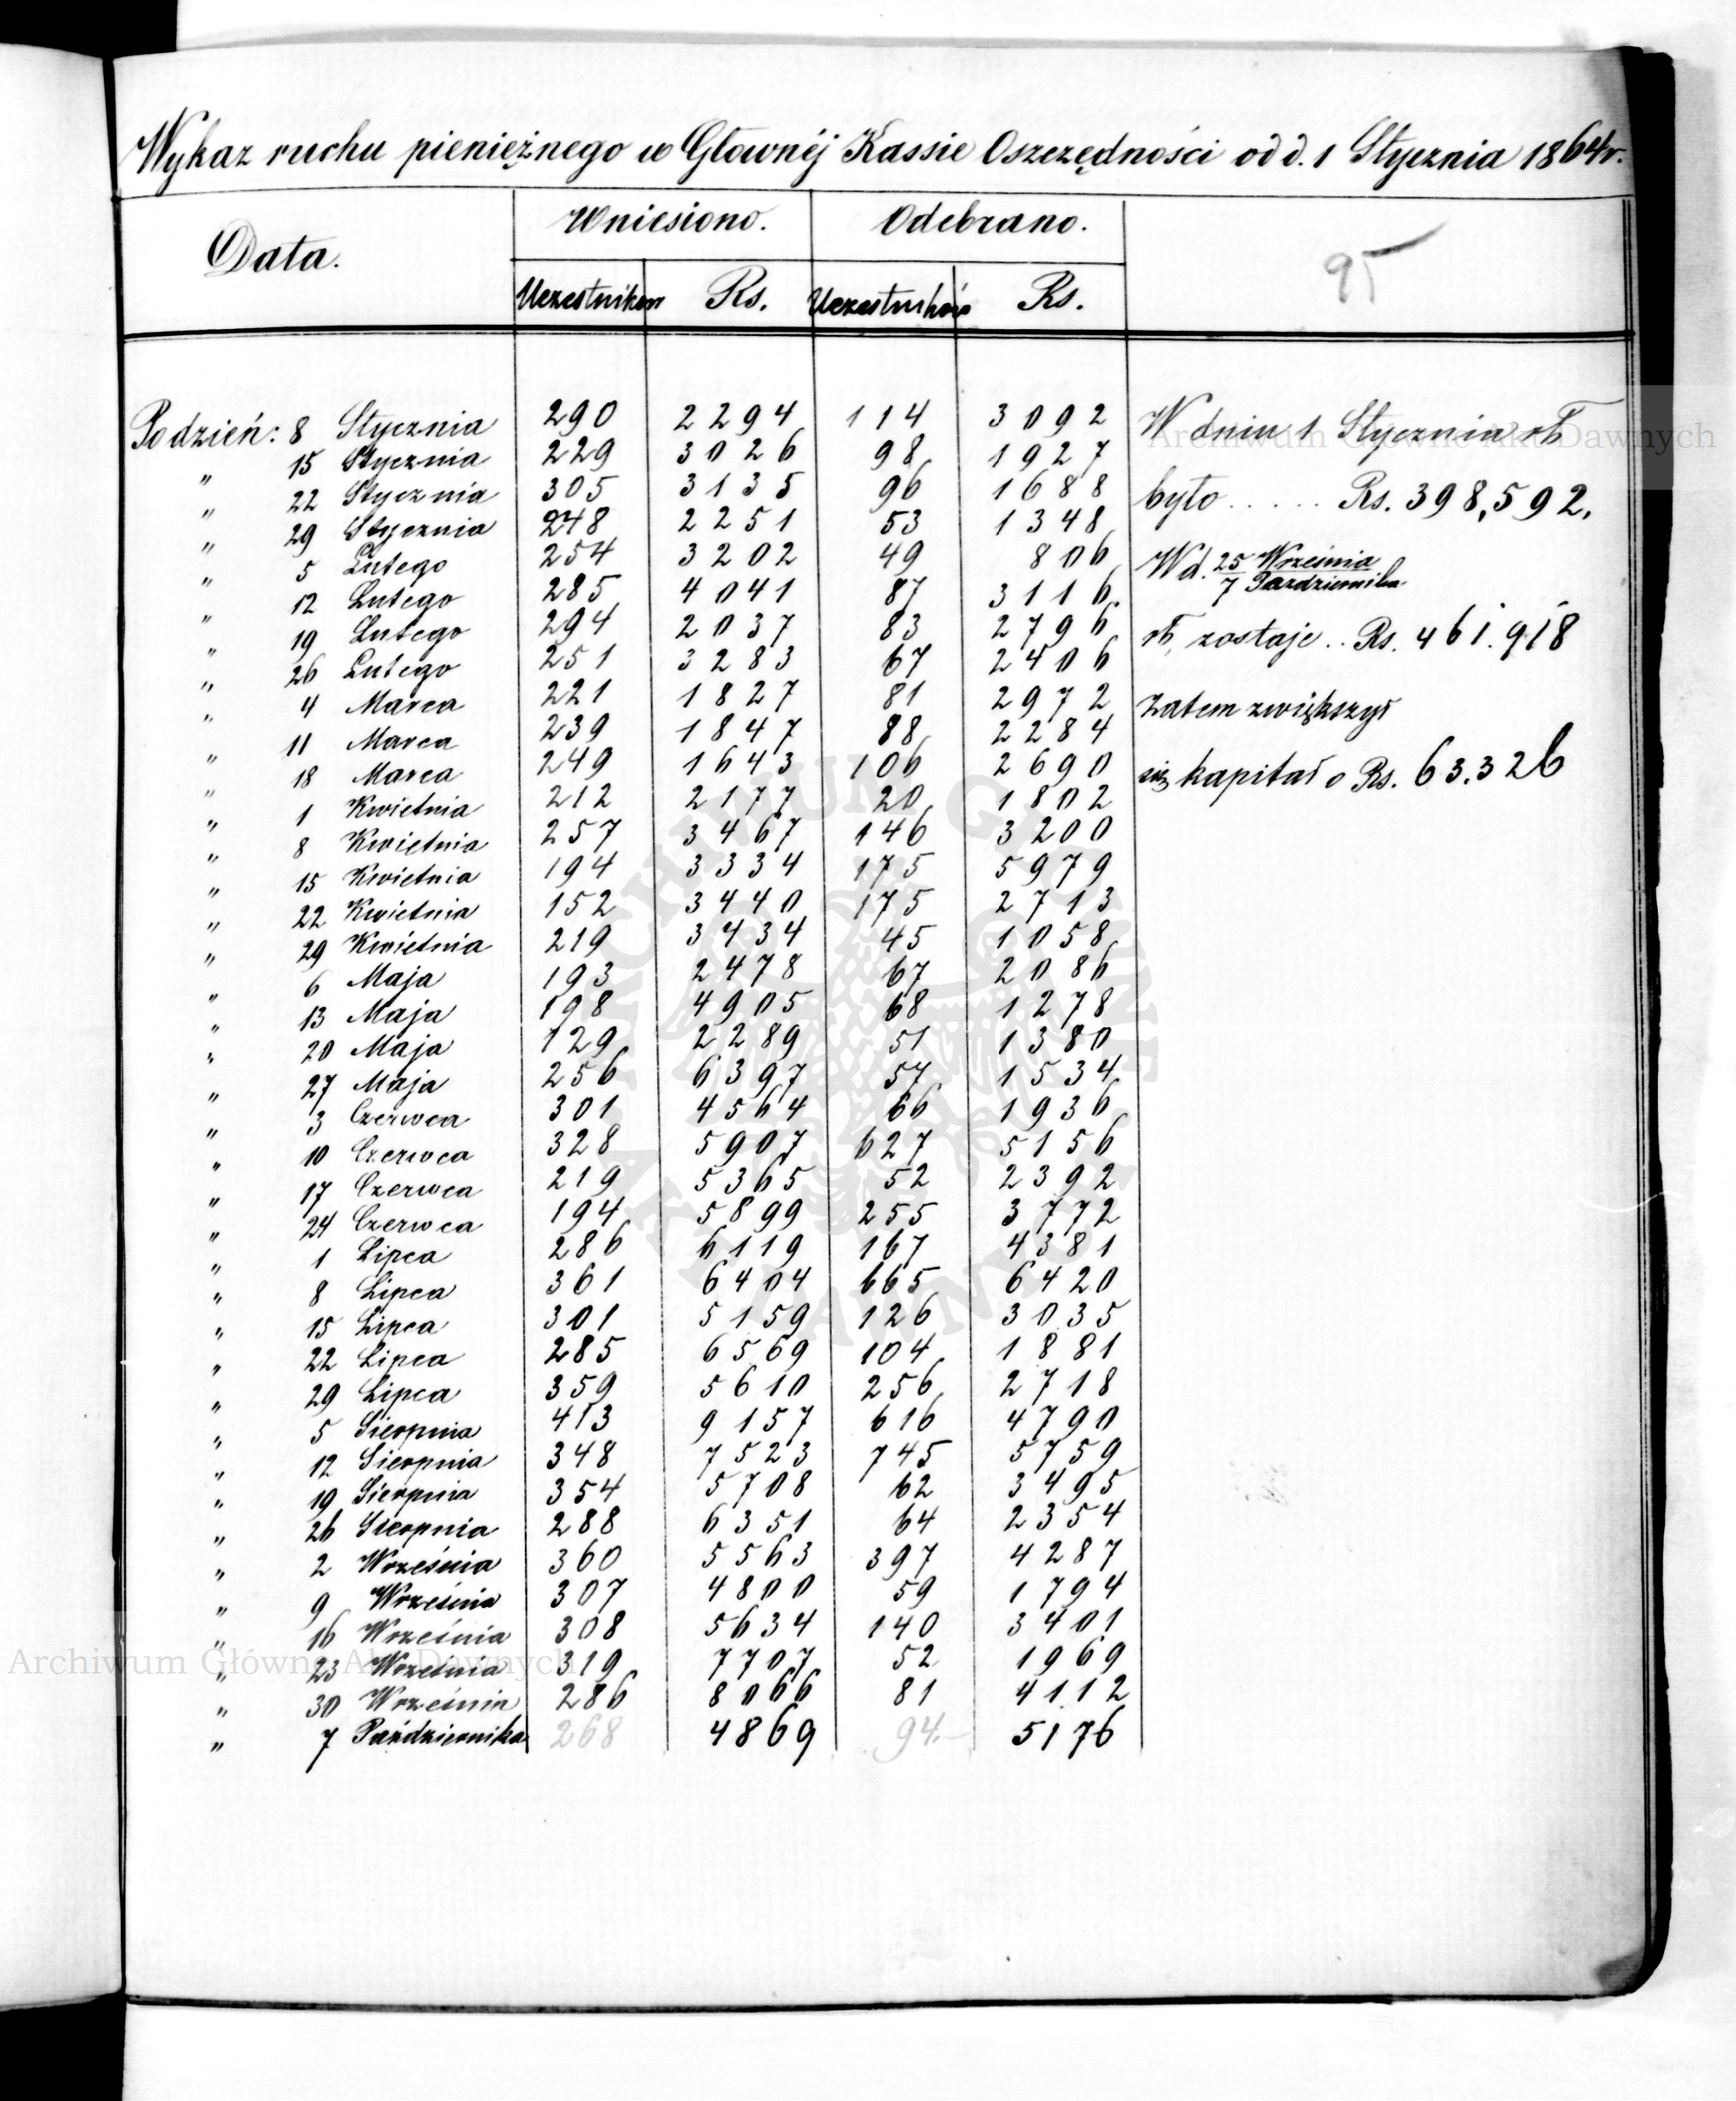 Wykaz ruchu pieniężnego w Głownéj Kassie Oszczędności od d. 1 Stycznia 1864 r.
Data. Wniesiono. Odebrano. 95
Uczestników Rs. Uczestników Rs.
Po dzień: 8 Stycznia 290 2294 114 3092 W dniu 1 Stycznia rb
" 15 Stycznia 229 3026 98 1927
" 22 Stycznia 305 3135 96 1688 było ..... Rs. 398,592.
" 29 Stycznia 248 2251 53 1348
" 5 Lutego 254 3202 49 806 W d. 25 Września / 7 Pazdziernika
" 12 Lutego 285 4041 87 3116
" 19 Lutego 294 2037 83 2796 rb. zostaje .. Rs. 461.918
" 26 Lutego 251 3283 67 2406
" 4 Marca 221 1827 81 2972 Zatem zwiększył
" 11 Marca 239 1847 88 2284
" 18 Marca 249 1643 106 2690 się kapitał o Rs. 63.326
" 1 Kwietnia 212 2177 20 1802
" 8 Kwietnia 257 3467 146 3200
" 15 Kwietnia 194 3334 175 5979
" 22 Kwietnia 152 3440 175 2713
" 29 Kwietnia 219 3434 45 1058
" 6 Maja 193 2478 67 2086
" 13 Maja 198 4905 68 1278
" 20 Maja 129 2289 51 1380
" 27 Maja 256 6397 57 1534
" 3 Czerwca 301 4564 66 1936
" 10 Czerwca 328 5907 627 5156
" 17 Czerwca 219 5365 52 2392
" 24 Czerwca 194 5899 255 3772
" 1 Lipca 286 6119 167 4381
" 8 Lipca 361 6404 665 6420
" 15 Lipca 301 5159 126 3035
" 22 Lipca 285 6569 104 1881
" 29 Lipca 359 5610 256 2718
" 5 Sierpnia 413 9157 616 4790
" 12 Sierpnia 348 7523 745 5759
" 19 Sierpnia 354 5708 62 3495
" 26 Sierpnia 288 6351 64 2354
" 2 Września 360 5563 397 4287
" 9 Września 307 4800 59 1794
" 16 Września 308 5634 140 3401
" 23 Września 319 7707 52 1969
" 30 Września 286 8066 81 4112
" 7 Października 268 4869 94.— 5176
Archiwum Główne Akt Dawnych
Archiwum Główne Akt Dawnych
ARCHIWUM GŁÓWNE AKT DAWNYCH